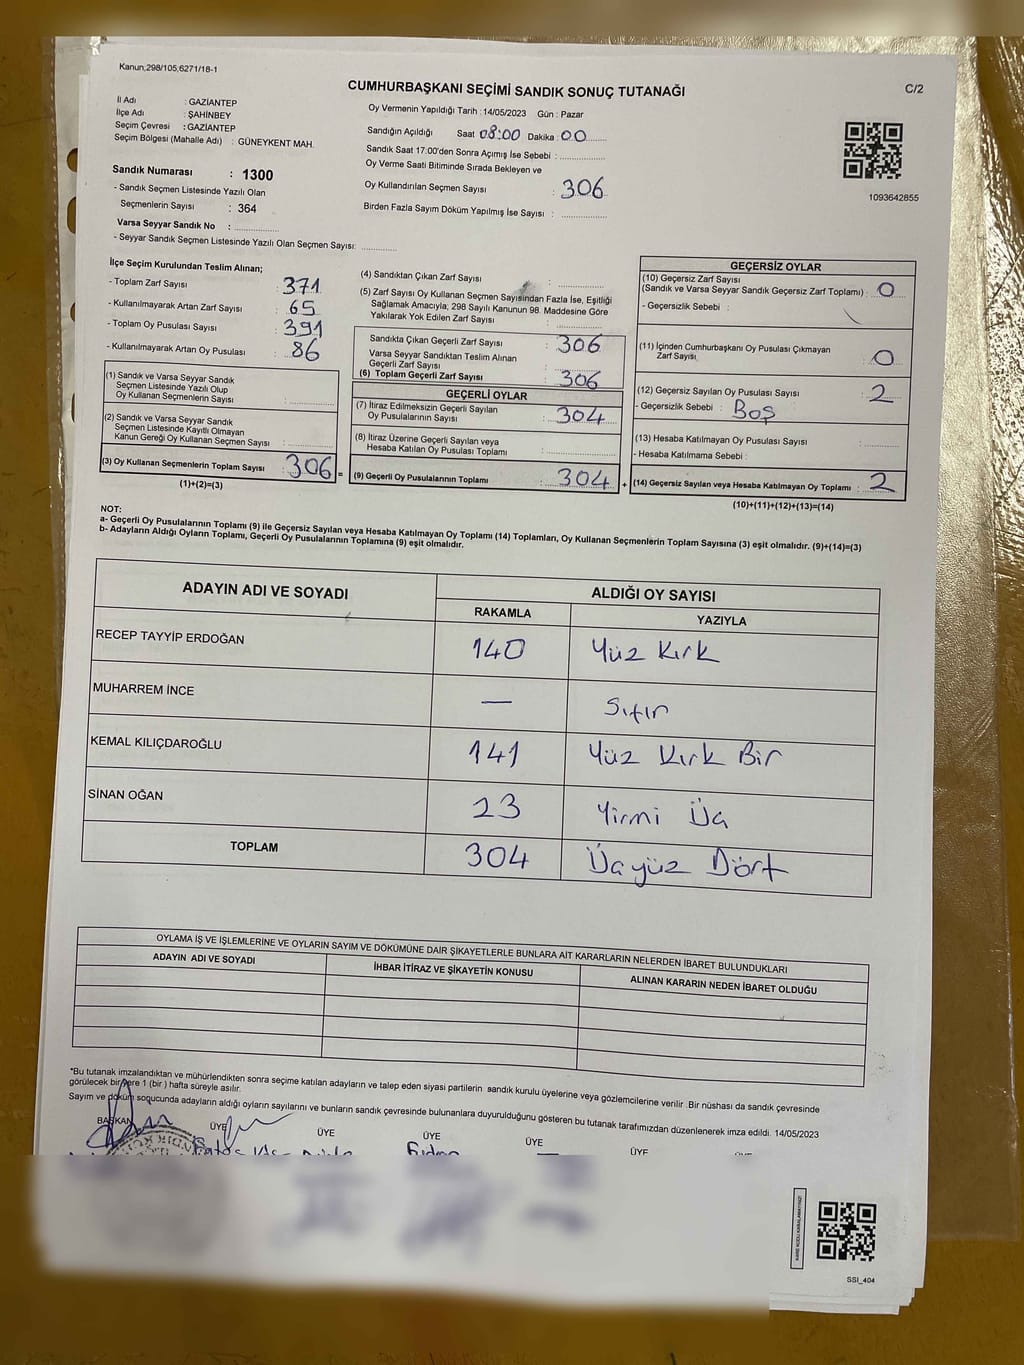 Kanun;298/105,6271/18-1
CUMHURBAŞKANI SEÇİMİ SANDIK SONUÇ TUTANAĞI
C/2
İl Adı : GAZİANTEP
İlçe Adı : ŞAHİNBEY
Seçim Çevresi : GAZİANTEP
Seçim Bölgesi (Mahalle Adı) : GÜNEYKENT MAH.
Sandık Numarası : 1300
- Sandık Seçmen Listesinde Yazılı Olan
Seçmenlerin Sayısı : 364
Varsa Seyyar Sandık No :
- Seyyar Sandık Seçmen Listesinde Yazılı Olan Seçmen Sayısı:
Oy Vermenin Yapıldığı Tarih : 14/05/2023 Gün : Pazar
Sandığın Açıldığı Saat 08:00 Dakika : 00
Sandık Saat 17:00'den Sonra Açımış İse Sebebi :
Oy Verme Saati Bitiminde Sırada Bekleyen ve
Oy Kullandırılan Seçmen Sayısı : 306
Birden Fazla Sayım Döküm Yapılmış İse Sayısı :
1093642855
İlçe Seçim Kurulundan Teslim Alınan;
- Toplam Zarf Sayısı : 371
- Kullanılmayarak Artan Zarf Sayısı : 65
- Toplam Oy Pusulası Sayısı : 391
- Kullanılmayarak Artan Oy Pusulası : 86
(1) Sandık ve Varsa Seyyar Sandık
Seçmen Listesinde Yazılı Olup
Oy Kullanan Seçmenlerin Sayısı :
(2) Sandık ve Varsa Seyyar Sandık
Seçmen Listesinde Kayıtlı Olmayan
Kanun Gereği Oy Kullanan Seçmen Sayısı :
(3) Oy Kullanan Seçmenlerin Toplam Sayısı : 306 =
(1)+(2)=(3)
(4) Sandıktan Çıkan Zarf Sayısı :
(5) Zarf Sayısı Oy Kullanan Seçmen Sayısından Fazla İse, Eşitliği
Sağlamak Amacıyla, 298 Sayılı Kanunun 98. Maddesine Göre
Yakılarak Yok Edilen Zarf Sayısı :
Sandıkta Çıkan Geçerli Zarf Sayısı : 306
Varsa Seyyar Sandıktan Teslim Alınan
Geçerli Zarf Sayısı :
(6) Toplam Geçerli Zarf Sayısı : 306
GEÇERLİ OYLAR
(7) İtiraz Edilmeksizin Geçerli Sayılan
Oy Pusulalarının Sayısı : 304
(8) İtiraz Üzerine Geçerli Sayılan veya
Hesaba Katılan Oy Pusulası Toplamı :
(9) Geçerli Oy Pusulalarının Toplamı : 304 +
GEÇERSİZ OYLAR
(10) Geçersiz Zarf Sayısı
(Sandık ve Varsa Seyyar Sandık Geçersiz Zarf Toplamı) : 0
- Geçersizlik Sebebi :
(11) İçinden Cumhurbaşkanı Oy Pusulası Çıkmayan
Zarf Sayısı : 0
(12) Geçersiz Sayılan Oy Pusulası Sayısı : 2
- Geçersizlik Sebebi : Boş
(13) Hesaba Katılmayan Oy Pusulası Sayısı :
- Hesaba Katılmama Sebebi :
(14) Geçersiz Sayılan veya Hesaba Katılmayan Oy Toplamı : 2
(10)+(11)+(12)+(13)=(14)
NOT:
a- Geçerli Oy Pusulalarının Toplamı (9) ile Geçersiz Sayılan veya Hesaba Katılmayan Oy Toplamı (14) Toplamları, Oy Kullanan Seçmenlerin Toplam Sayısına (3) eşit olmalıdır. (9)+(14)=(3)
b- Adayların Aldığı Oyların Toplamı, Geçerli Oy Pusulalarının Toplamına (9) eşit olmalıdır.
ADAYIN ADI VE SOYADI ALDIĞI OY SAYISI
RAKAMLA YAZIYLA
RECEP TAYYİP ERDOĞAN 140 Yüz Kırk
MUHARREM İNCE — Sıfır
KEMAL KILIÇDAROĞLU 141 Yüz Kırk Bir
SİNAN OĞAN 23 Yirmi Üç
TOPLAM 304 Üçyüz Dört
OYLAMA İŞ VE İŞLEMLERİNE VE OYLARIN SAYIM VE DÖKÜMÜNE DAİR ŞİKAYETLERLE BUNLARA AİT KARARLARIN NELERDEN İBARET BULUNDUKLARI
ADAYIN ADI VE SOYADI İHBAR İTİRAZ VE ŞİKAYETİN KONUSU ALINAN KARARIN NEDEN İBARET OLDUĞU
*Bu tutanak imzalandıktan ve mühürlendikten sonra seçime katılan adayların ve talep eden siyasi partilerin sandık kurulu üyelerine veya gözlemcilerine verilir .Bir nüshası da sandık çevresinde
görülecek bir yere 1 (bir ) hafta süreyle asılır.
Sayım ve döküm sonucunda adayların aldığı oyların sayılarını ve bunların sandık çevresinde bulunanlara duyurulduğunu gösteren bu tutanak tarafımızdan düzenlenerek imza edildi. 14/05/2023
BAŞKAN ÜYE ÜYE ÜYE ÜYE ÜYE
SSI_404